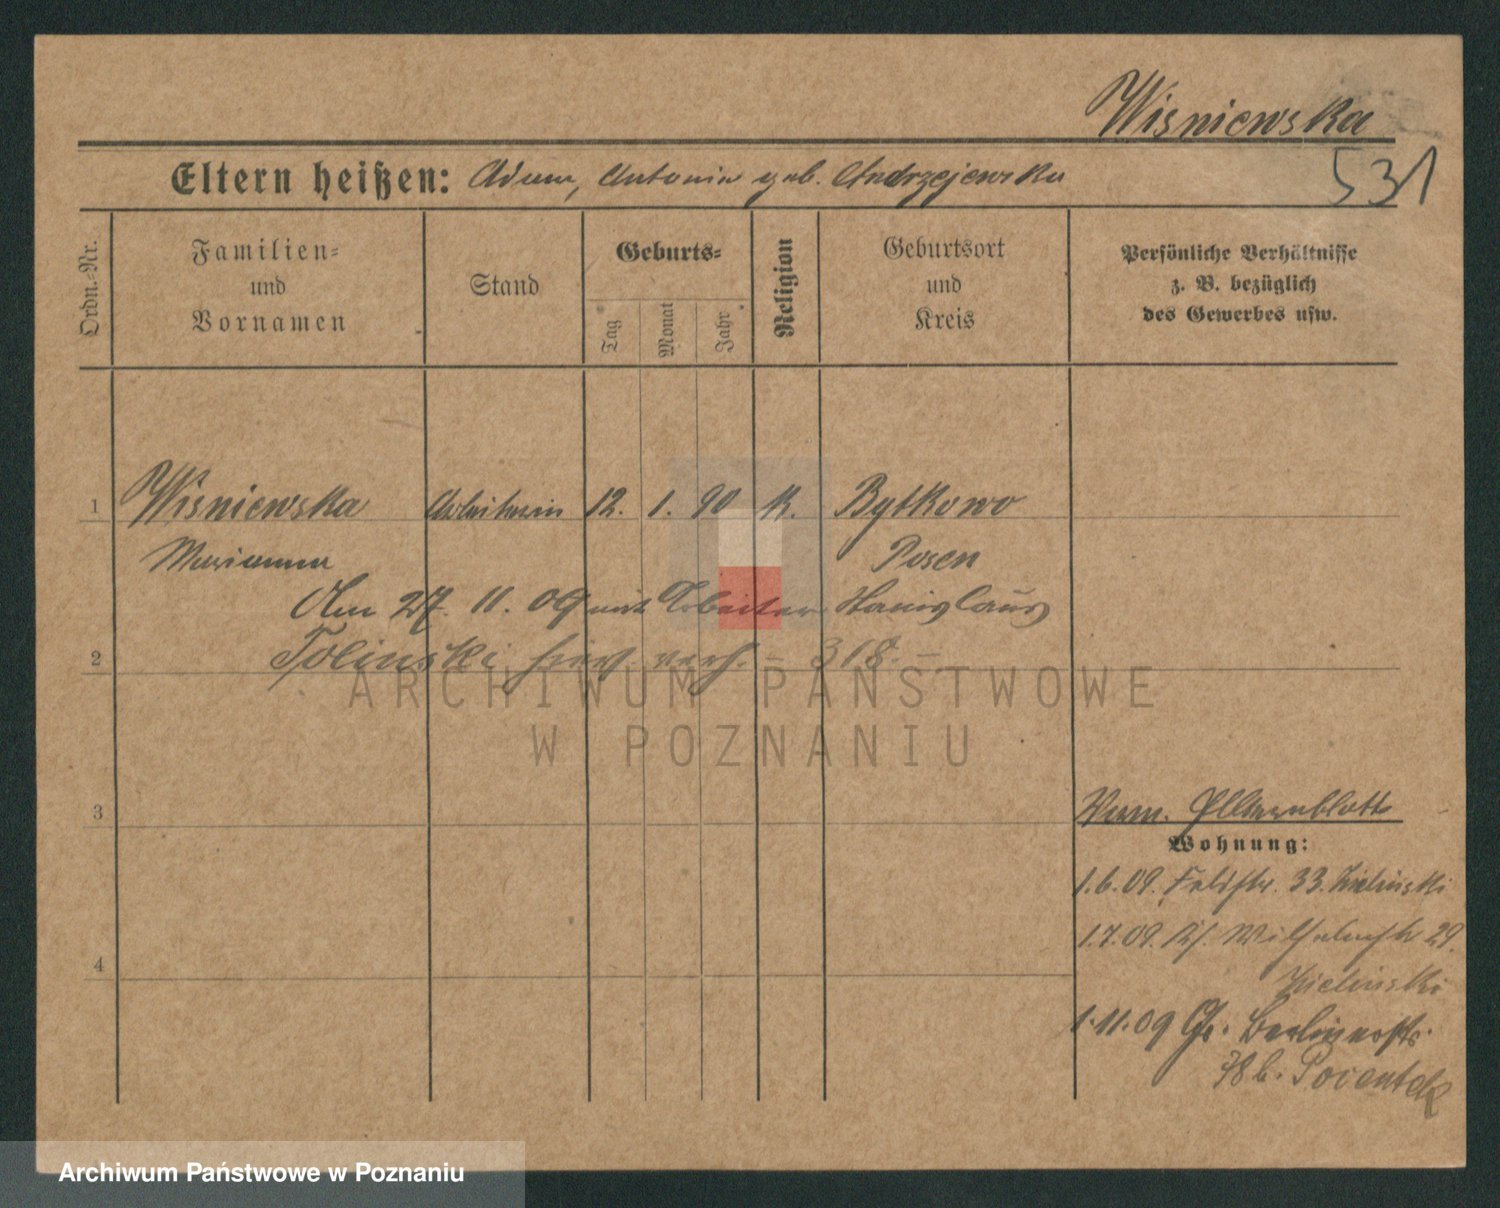 Wisniewska
Eltern heißen: Adam, Antonie geb. Andrzejewska
531
Ordn.-Nr.
Familien-
und
Vornamen
Stand
Geburts-
Tag
Monat
Jahr
Religion
Geburtsort
und
Kreis
Persönliche Verhältnisse
z. B. bezüglich
des Gewerbes usw.
1 Wisniewska Arbeiterin 12. 1. 90 k. Bytkowo
Marianna Posen
Am 27. 11. 09 mit Arbeiter Stanislaus
Tolinski verh. – 318. –
2
ARCHIWUM PAŃSTWOWE
W POZNANIU
3
Wohnung:
1.6.09. Feldstr. 33. Zielinski
1.7.09. Wilhelmstr 29.
4
Zielinski
1.11.09 Gr. Berlinerstr.
78b.
Archiwum Państwowe w Poznaniu